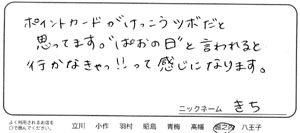 ポイントカードがけっこうツボだと
思ってます。"ぱおの日"と言われると
行かなきゃっ!!って感じになります。
ニックネーム きち
よく利用されるお店を
○で囲んでください。 立川 小作 羽村 昭島 青梅 高幡 堀之内 八王子